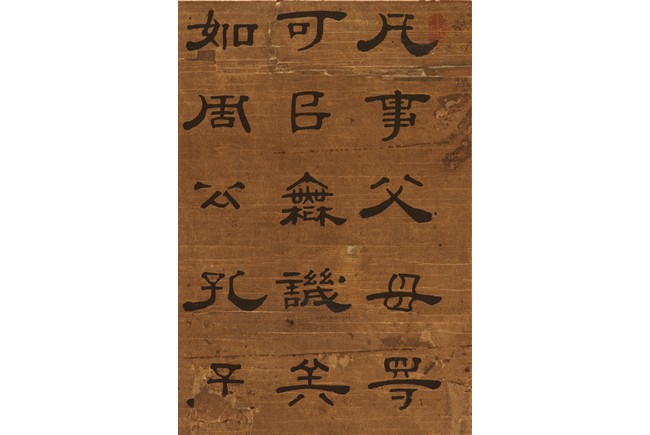 凡事父母㝵
可㠯無譏矣
如周公孔子